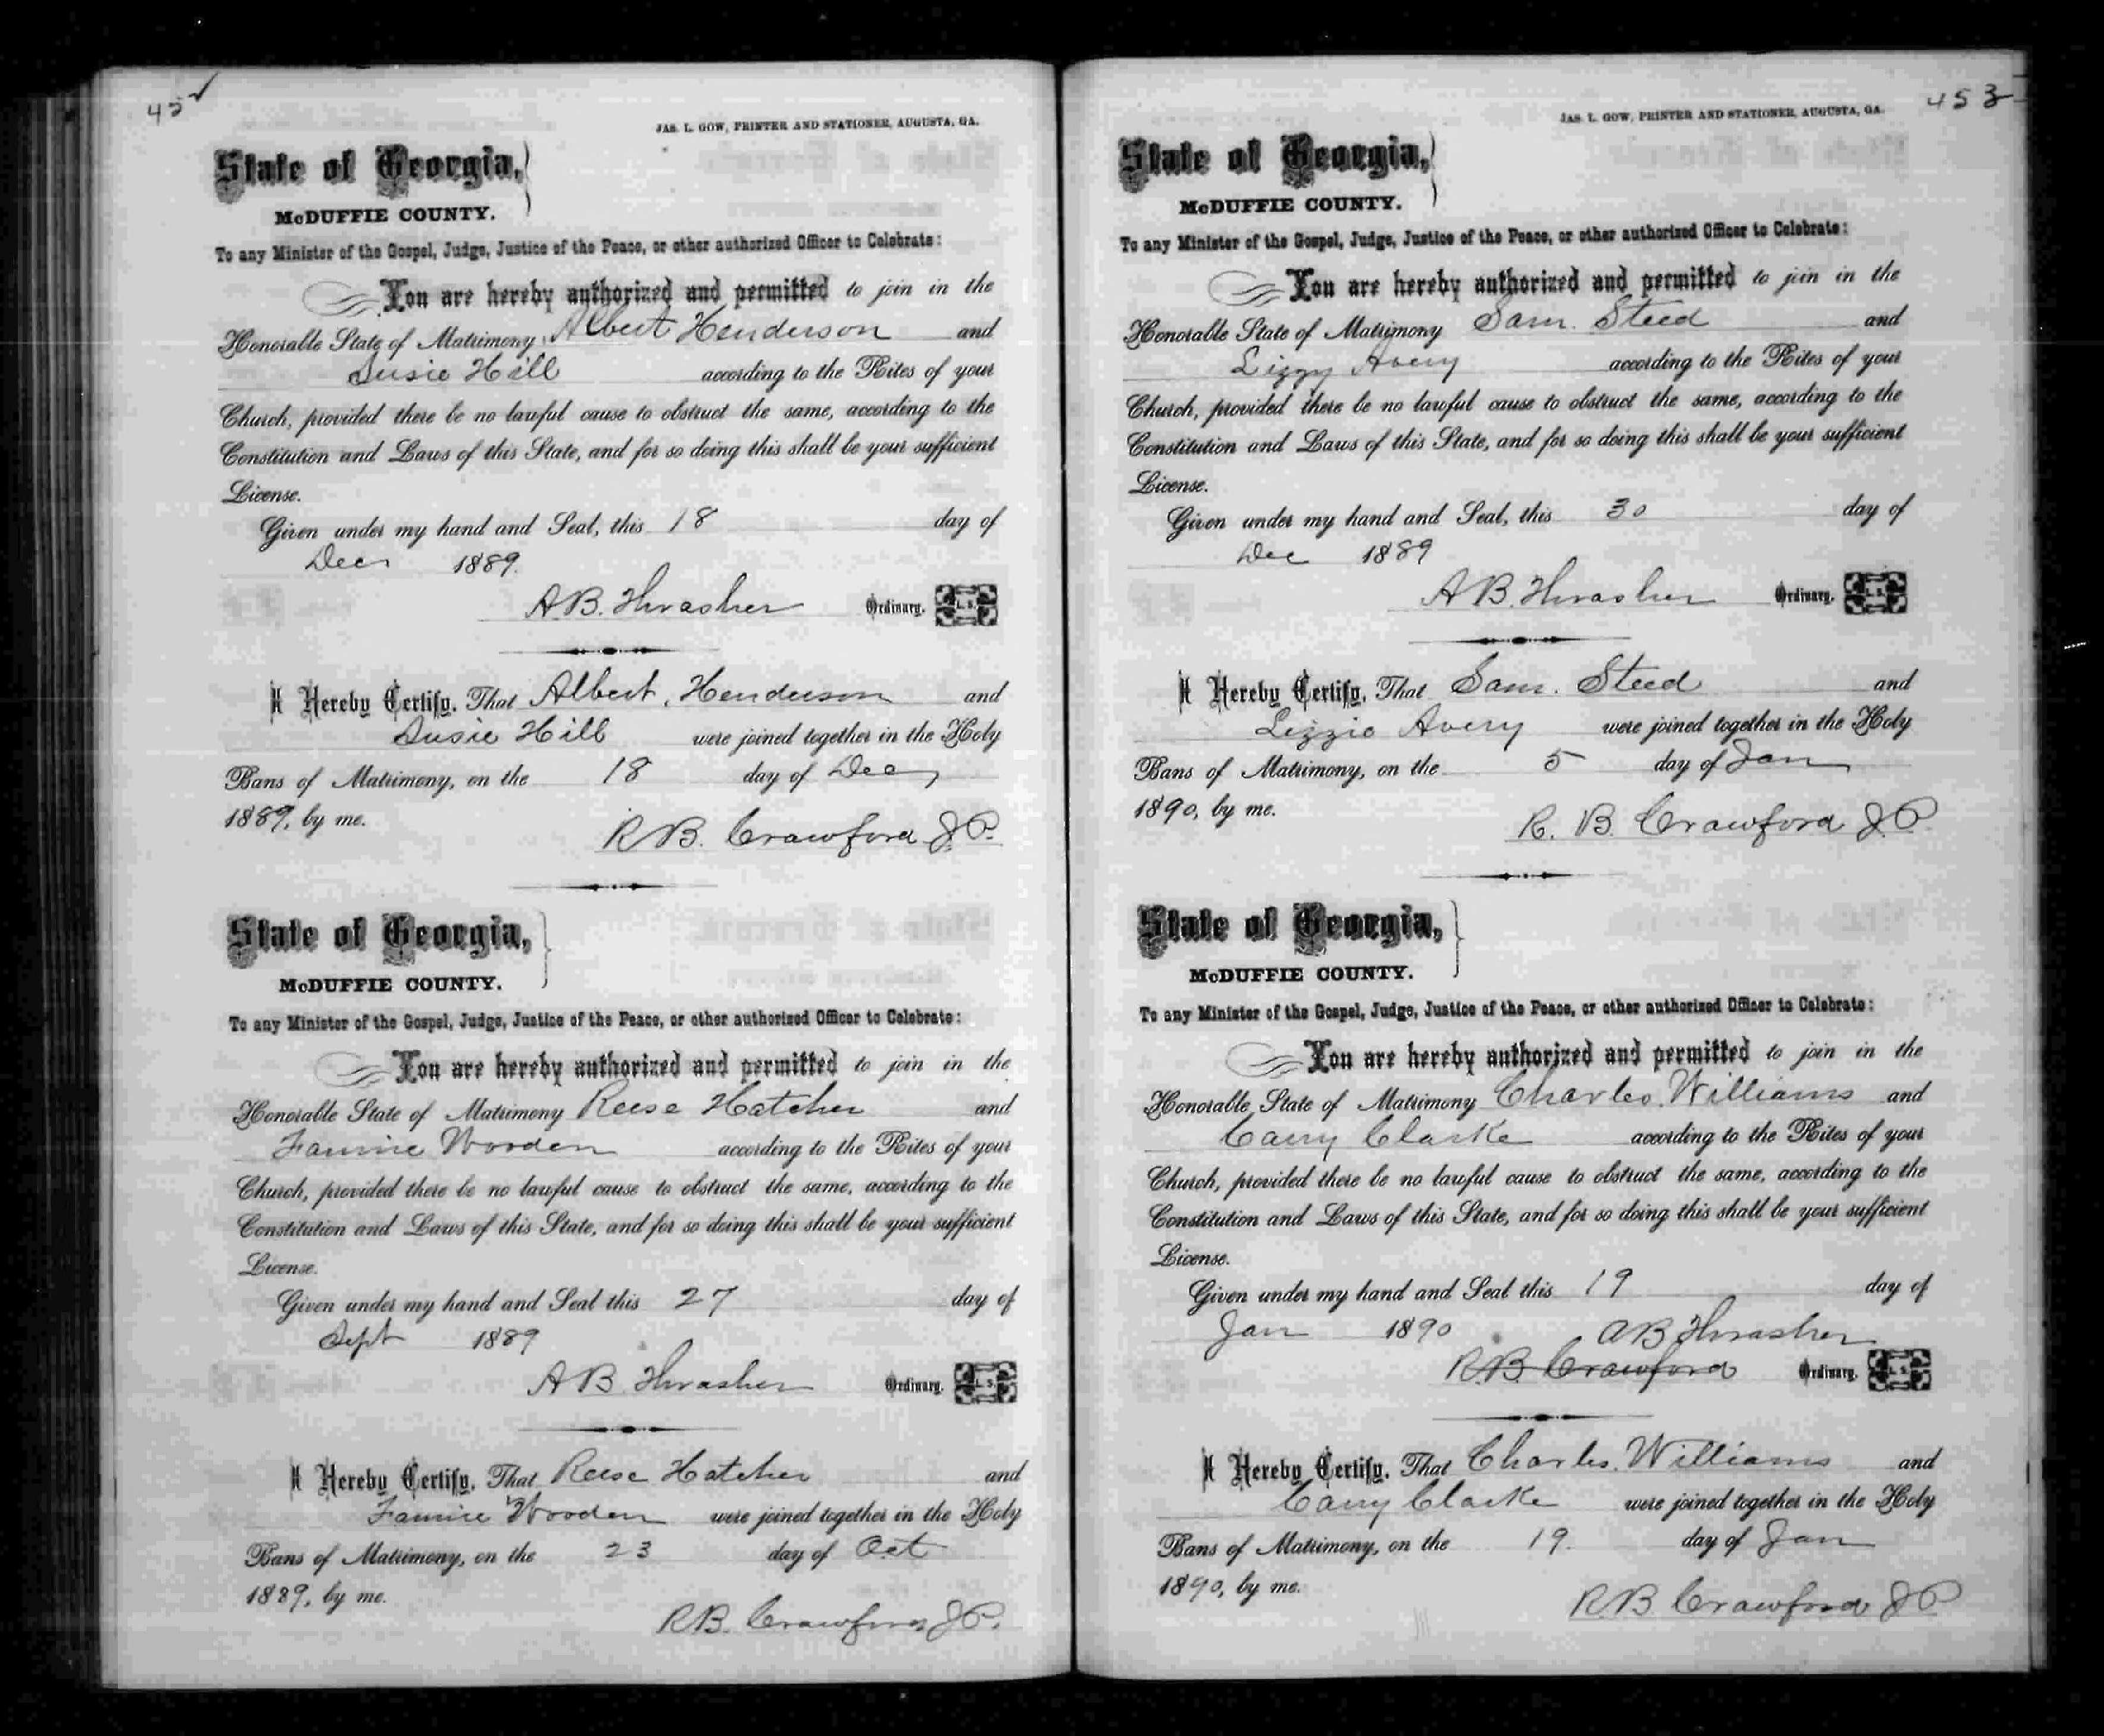 452
JAS. L. GOW, PRINTER AND STATIONER, AUGUSTA, GA.
State of Georgia,
McDUFFIE COUNTY.
To any Minister of the Gospel, Judge, Justice of the Peace, or other authorized Officer to Celebrate:
You are hereby authorized and permitted to join in the
Honorable State of Matrimony Albert Henderson and
Susie Hill according to the Rites of your
Church, provided there be no lawful cause to obstruct the same, according to the
Constitution and Laws of this State, and for so doing this shall be your sufficient
License.
Given under my hand and Seal, this 18 day of
Dec 1889.
A.B. Thrasher Ordinary. L. S.
I Hereby Certify, That Albert Henderson and
Susie Hill were joined together in the Holy
Bans of Matrimony, on the 18 day of Dec
1889, by me.
R.B. Crawford J.P.
State of Georgia,
McDUFFIE COUNTY.
To any Minister of the Gospel, Judge, Justice of the Peace, or other authorized Officer to Celebrate:
You are hereby authorized and permitted to join in the
Honorable State of Matrimony Reese Hatcher and
Fannie Wooden according to the Rites of your
Church, provided there be no lawful cause to obstruct the same, according to the
Constitution and Laws of this State, and for so doing this shall be your sufficient
License.
Given under my hand and Seal this 27 day of
Sept 1889
A B Thrasher Ordinary. L. S.
I Hereby Certify, That Reese Hatcher and
Fannie Wooden were joined together in the Holy
Bans of Matrimony, on the 23 day of Oct
1889, by me.
R.B. Crawford J.P.
453
JAS. L. GOW, PRINTER AND STATIONER, AUGUSTA, GA.
State of Georgia,
McDUFFIE COUNTY.
To any Minister of the Gospel, Judge, Justice of the Peace, or other authorized Officer to Celebrate:
You are hereby authorized and permitted to join in the
Honorable State of Matrimony Sam. Steed and
Lizzy Avery according to the Rites of your
Church, provided there be no lawful cause to obstruct the same, according to the
Constitution and Laws of this State, and for so doing this shall be your sufficient
License.
Given under my hand and Seal, this 30 day of
Dec 1889
A B. Thrasher Ordinary. L. S.
I Hereby Certify, That Sam. Steed and
Lizzie Avery were joined together in the Holy
Bans of Matrimony, on the 5 day of Jan
1890, by me.
R. B. Crawford J.P.
State of Georgia,
McDUFFIE COUNTY.
To any Minister of the Gospel, Judge, Justice of the Peace, or other authorized Officer to Celebrate:
You are hereby authorized and permitted to join in the
Honorable State of Matrimony Charles Williams and
Carry Clarke according to the Rites of your
Church, provided there be no lawful cause to obstruct the same, according to the
Constitution and Laws of this State, and for so doing this shall be your sufficient
License.
Given under my hand and Seal this 19 day of
Jan 1890 A B Thrasher
R.B. Crawford Ordinary. L. S.
I Hereby Certify, That Charles Williams and
Carry Clarke were joined together in the Holy
Bans of Matrimony, on the 19. day of Jan
1890, by me.
R.B. Crawford J P